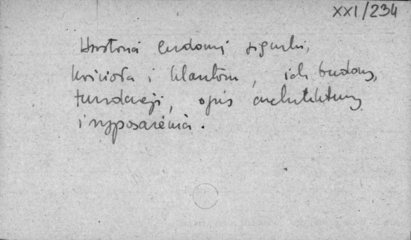 XXI/234
Historia cudownej figurki,
kościoła i klasztoru, ich budowy,
fundacji, opis architektury
i wyposażenia.